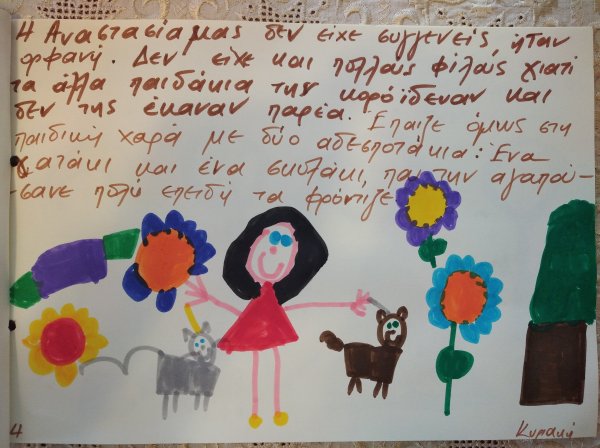 Η Αναστασία μας δεν είχε συγγενείς, ήταν
ορφανή. Δεν είχε και πολλούς φίλους γιατί
τα άλλα παιδάκια την κορόϊδευαν και
δεν της έκαναν παρέα. Έπαιζε όμως στη
παιδική χαρά με δύο αδεσποτάκια: Ένα
γατάκι και ένα σκυλάκι, που την αγαπού-
-σανε πολύ επειδή τα φρόντιζε
4
Κυριακή